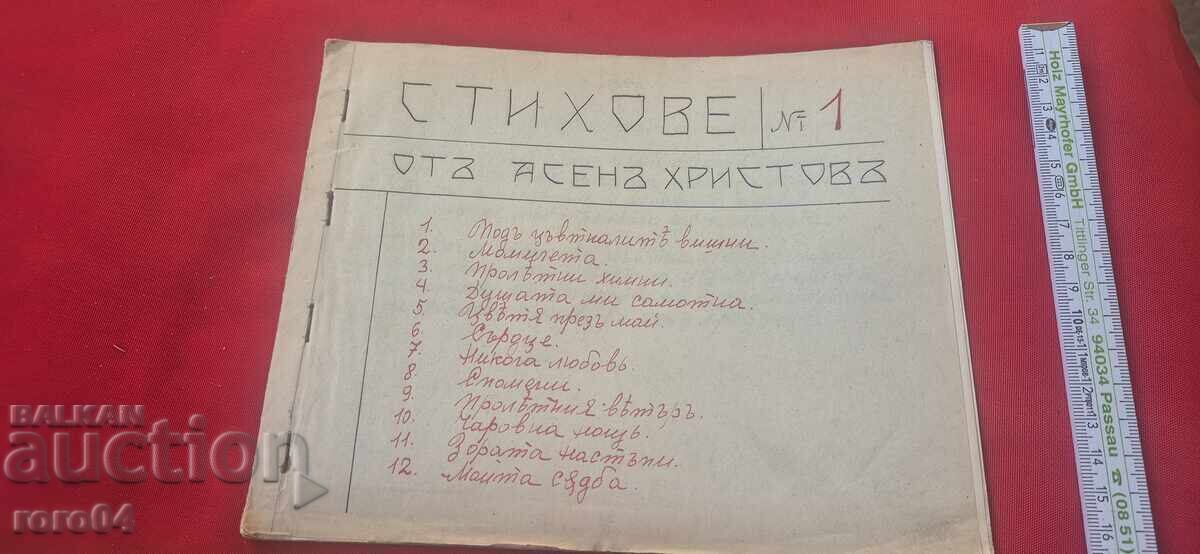 СТИХОВЕ № 1
ОТЪ АСЕНЪ ХРИСТОВЪ
1. Подъ цъвтналитѣ вишни.
2. Момичета.
3. Пролѣтни химни.
4. Душата ми самотна.
5. Цвѣтя презъ май.
6. Сърдце.
7. Никога любовь.
8. Спомени.
9. Пролѣтния вѣтъръ.
10. Чаровна нощь.
11. Зората настъпи.
12. Мойта сѫдба.
BALKAN
auction
roro04
Holz Mayrhofer GmbH
Tittlinger Str. 34 94034 Passau ☎ (08 51